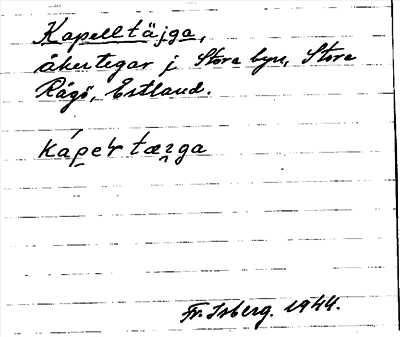 Kapelltäjga,
åkertegar i Stora byn, Stora
Rågö, Estland.
Fr. Isberg. 1944.